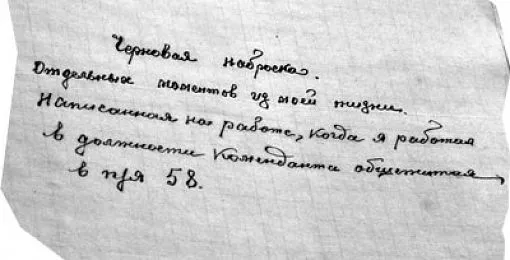 Черновая наброска.
Отдельных моментов из моей жизни.
Написанная на работе, когда я работал
в должности Коменданта общежития,
в п/я 58.